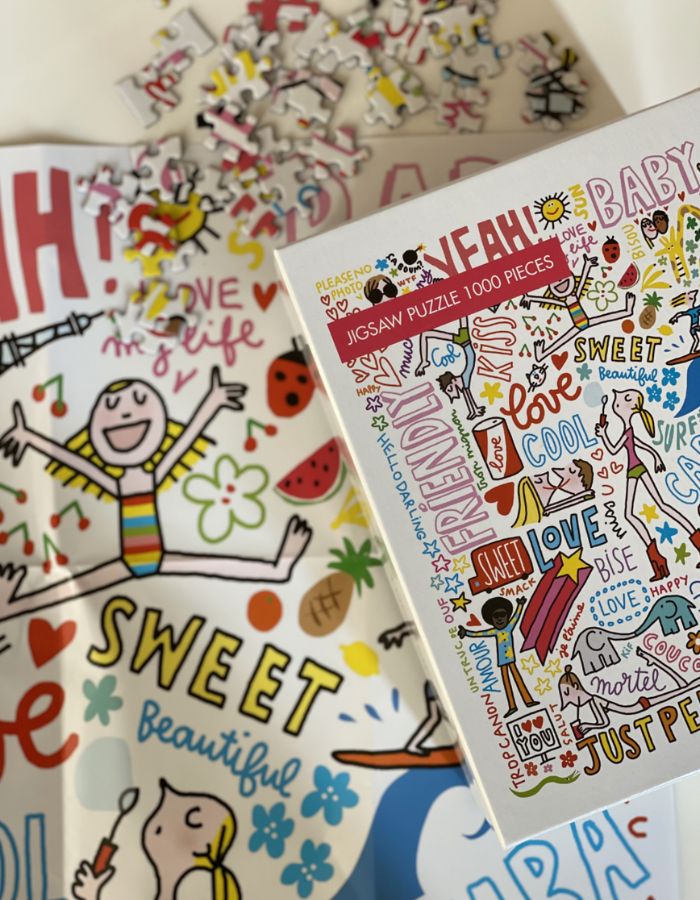 BABY
SUN
YEAH!
LOVE
my life
BISOU
PLEASE NO
PHOTO
WTF
JIGSAW PUZZLE 1000 PIECES
KISS
Cool
much
HAPPY
SWEET
Beautiful
love
FRIENDLY
HELLO DARLING
non mignon
love
COOL
SURF
miss U
SWEET
LOVE
SMACK
BISE
LOVE
HAPPY
je t'aime
UN TRUC DE OUF
AMOUR
Kif
COUCO
mortel
TROP CANON
I
YOU
SALUT
JUST PE
AH!
LOVE
my life
SWEET
Beautiful